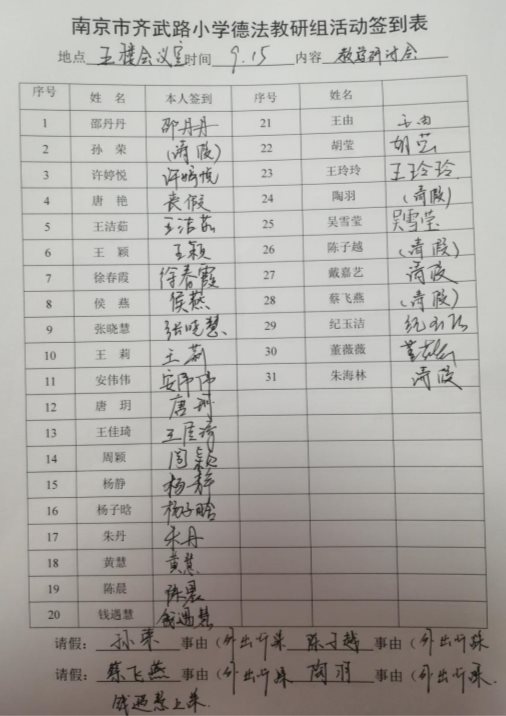 南京市齐武路小学德法教研组活动签到表
地点 五楼会议室 时间 9.15 内容 教学研讨会
序号 姓 名 本人签到 序号 姓名
1 邵丹丹 邵丹丹 21 王由 王由
2 孙 荣 (请假) 22 胡莹 胡莹
3 许婷悦 许婷悦 23 王玲玲 王玲玲
4 唐 艳 丧假 24 陶羽 (请假)
5 王洁茹 王洁茹 25 吴雪莹 吴雪莹
6 王 颖 王颖 26 陈子越 (请假)
7 徐春霞 徐春霞 27 戴嘉艺 请假
8 侯 燕 侯燕 28 蔡飞燕 (请假)
9 张晓慧 张晓慧 29 纪玉洁 纪玉洁
10 王 莉 王莉 30 董薇薇 董薇薇
11 安伟伟 安伟伟 31 朱海林 请假
12 唐 玥 唐玥
13 王佳琦 王佳琦
14 周颖 周颖
15 杨静 杨静
16 杨子晗 杨子晗
17 朱丹 朱丹
18 黄慧 黄慧
19 陈晨 陈晨
20 钱遇慧 钱遇慧
请假: 孙荣 事由 (外出听课 陈子越 事由 (外出听课
请假: 蔡飞燕 事由 (外出听课 陶羽 事由 (外出听课
钱遇慧上课.